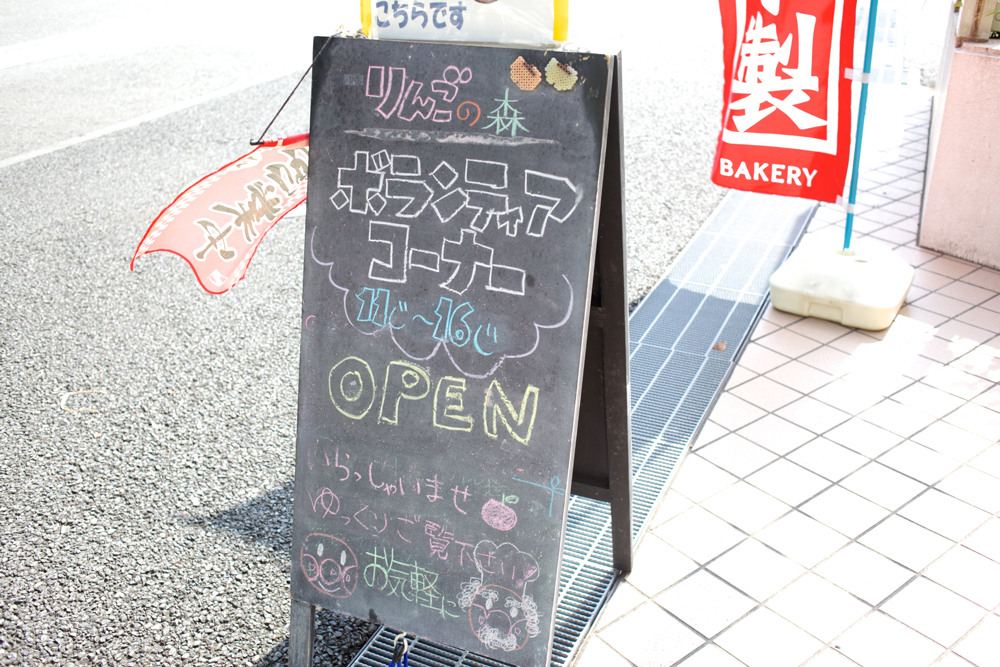 こちらです
りんごの森
ボランティア
コーナー
11じ～16じ
OPEN
いらっしゃいませ
ゆっくりご覧下さい
お気軽に
製
BAKERY